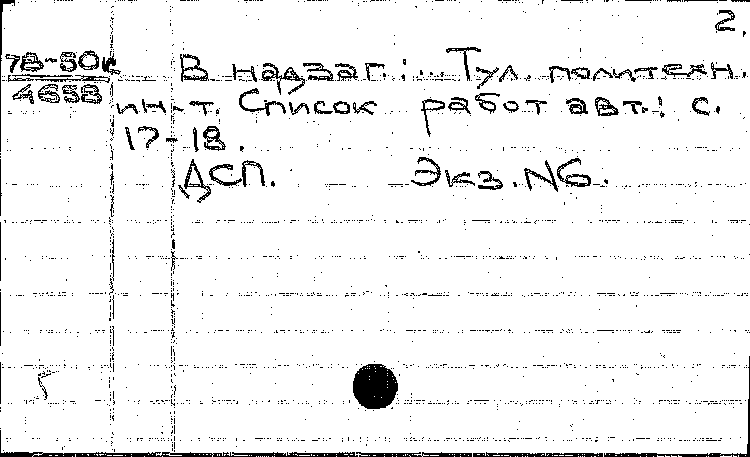 2.
78-50к
4658
В надзаг.: ... Тул. политехн.
ин-т. Список работ авт.: с.
17-18.
ДСП. Экз. N6.